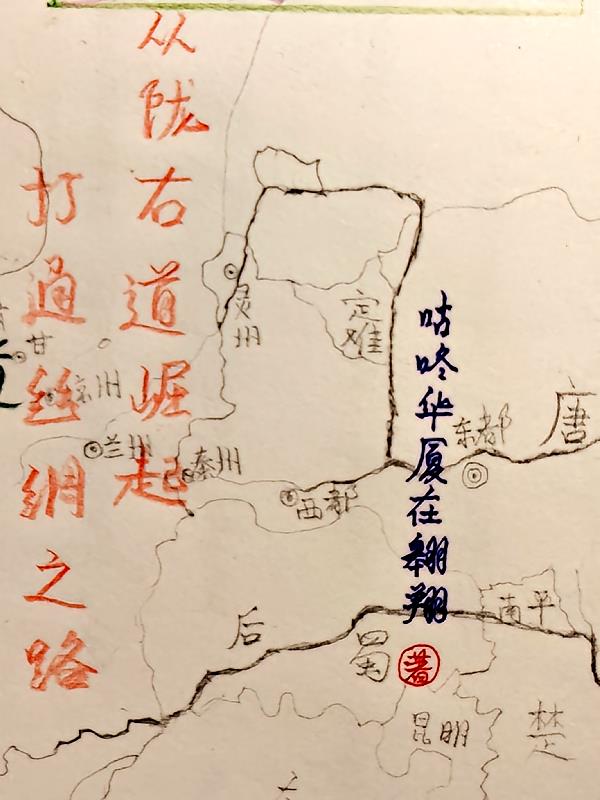 从陇右道崛起
打通丝绸之路
咕咚华厦在翱翔
著
灵州
定难
甘
凉州
兰州
秦州
西都
东都
唐
后
蜀
南平
昆明
楚